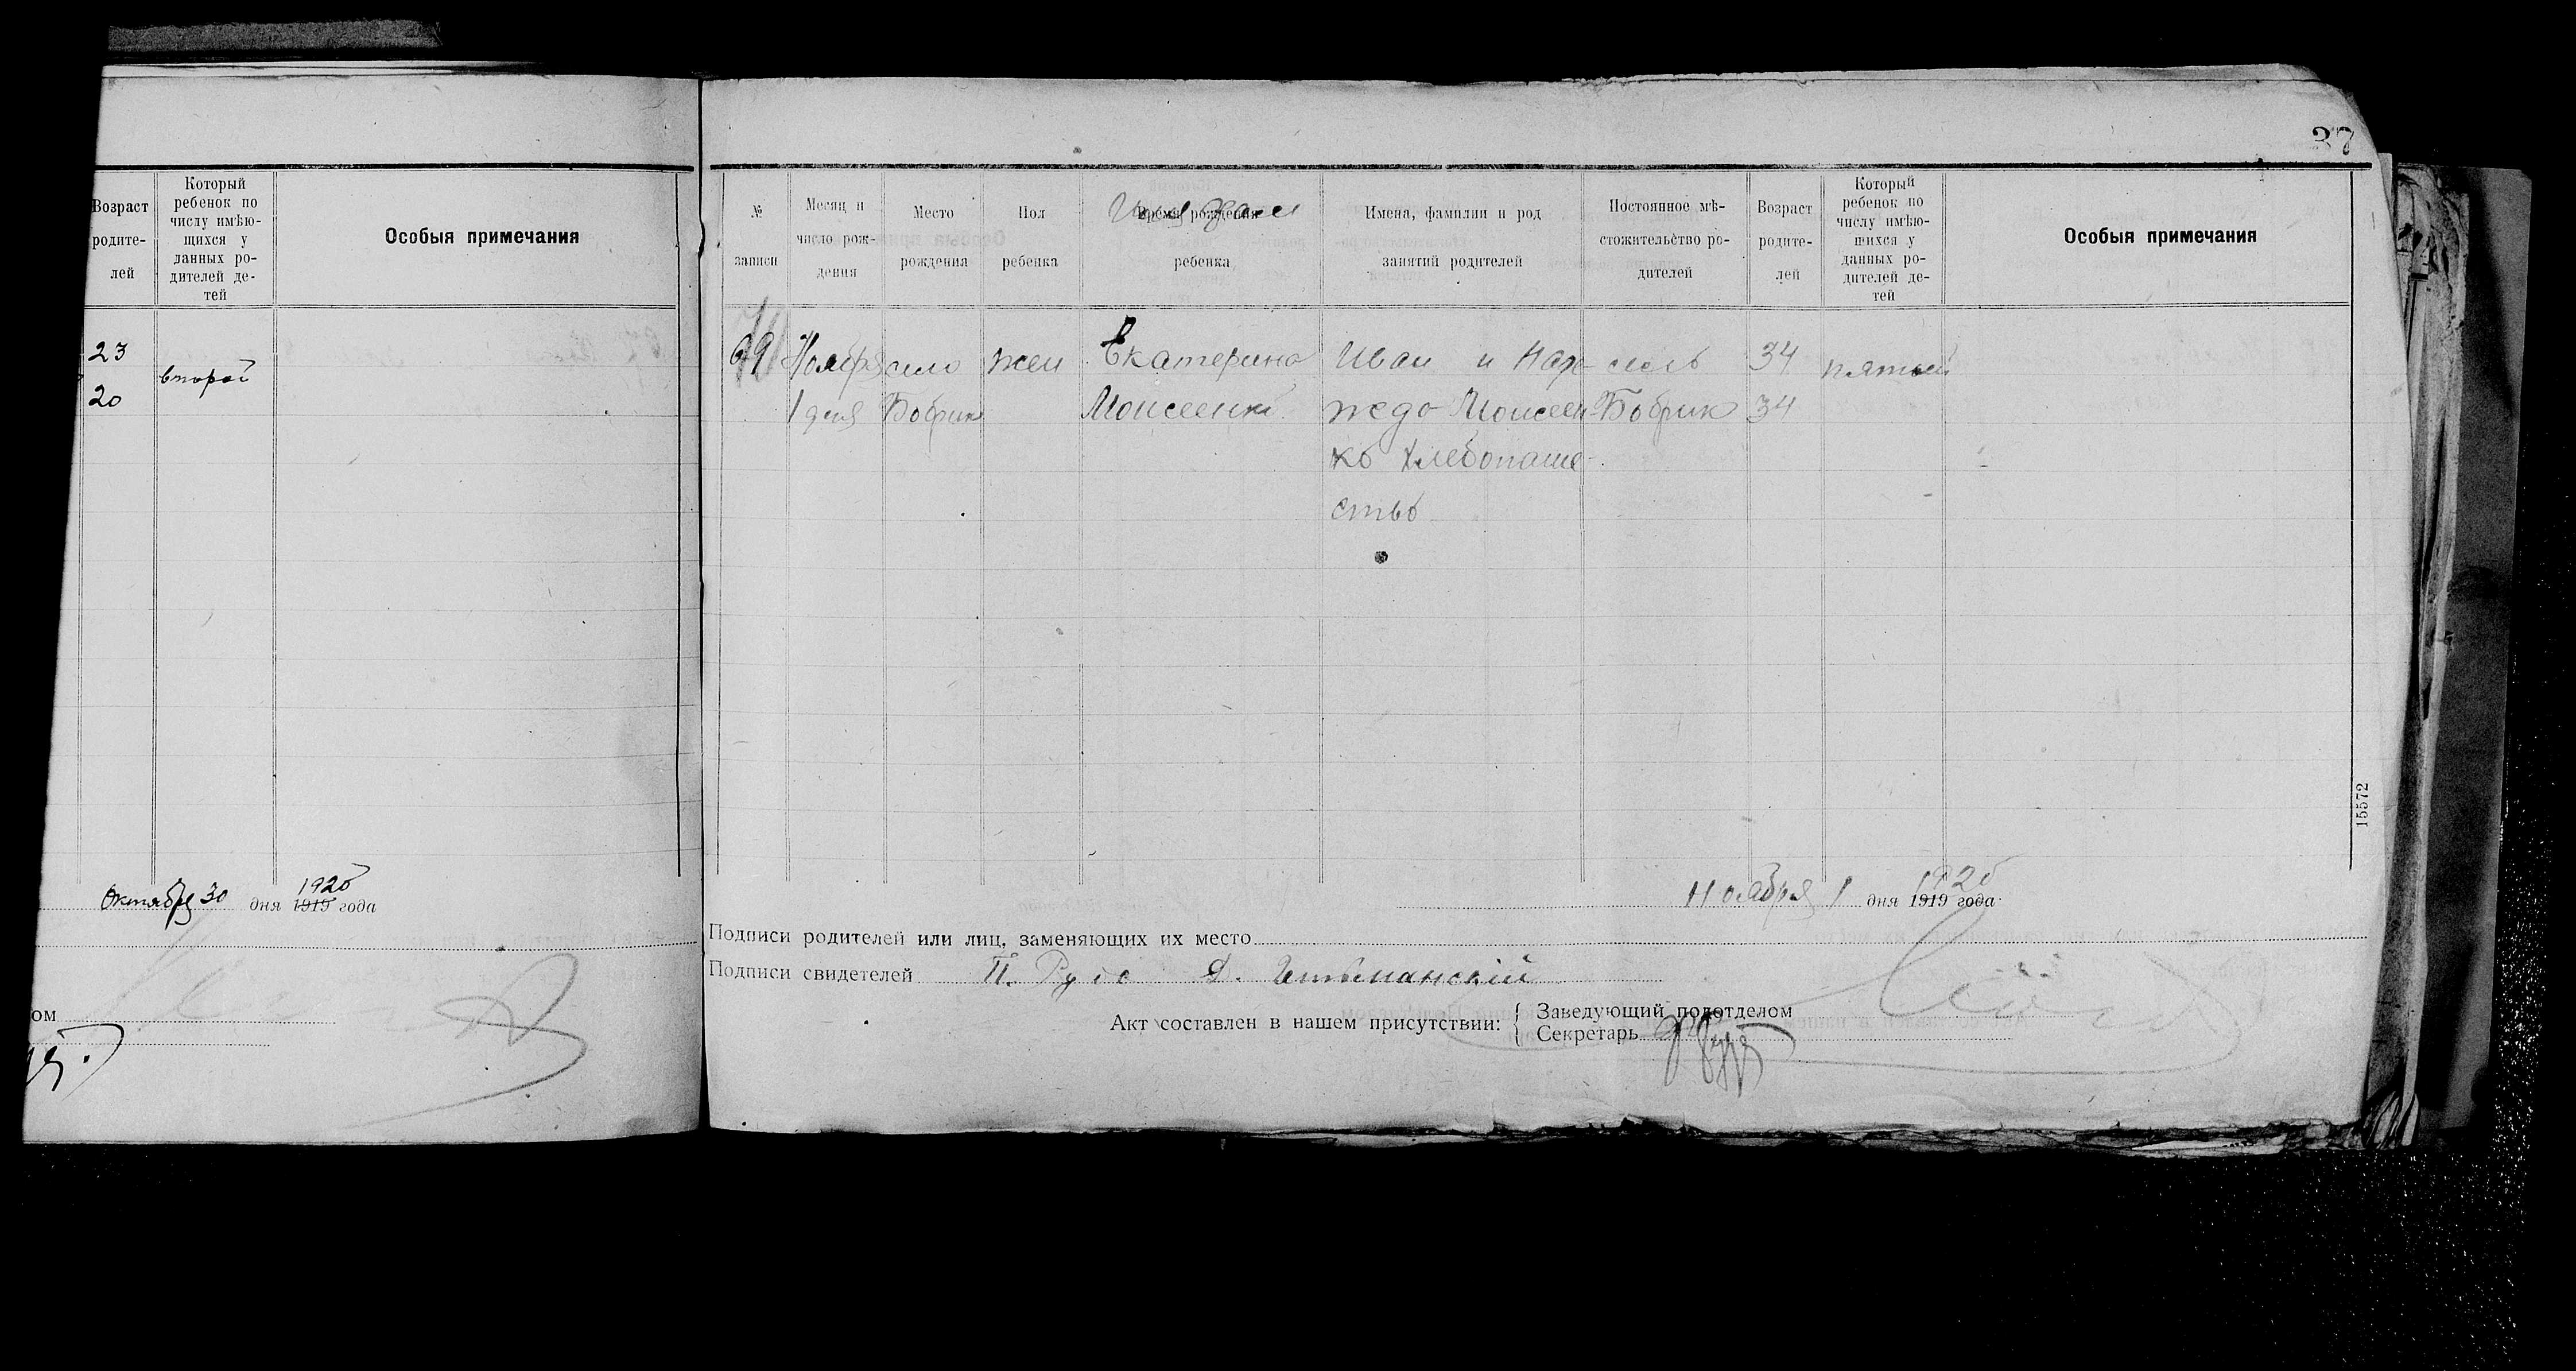 37
Возраст
родите-
лей
Который
ребенок по
числу имѣю-
щихся у
данных ро-
дителей де-
тей
Особыя примечания
23
второй
20
Октября 30 дня 1919 года
1920
ом
№
записи
Месяц и
число рож-
дения
Место
рождения
Пол
ребенка
Время рождения
ребенка
Имена, фамилии и род
занятий родителей
Постоянное мѣ-
стожительство ро-
дителей
Возраст
родите-
лей
Который
ребенок по
числу имѣю-
щихся у
данных ро-
дителей де-
тей
Особыя примечания
69 Ноября село жен Екатерина Иван и Наде- село 34 пятый
1 дня Бобрик Моисеенко жда Моисеен- Бобрик 34
ко хлебопаше-
ство
15572
Ноября 1 дня 1919 года
1920
Подписи родителей или лиц, заменяющих их место
Подписи свидетелей П. Д.
Акт составлен в нашем присутствии:
Заведующий подотделом
Секретарь